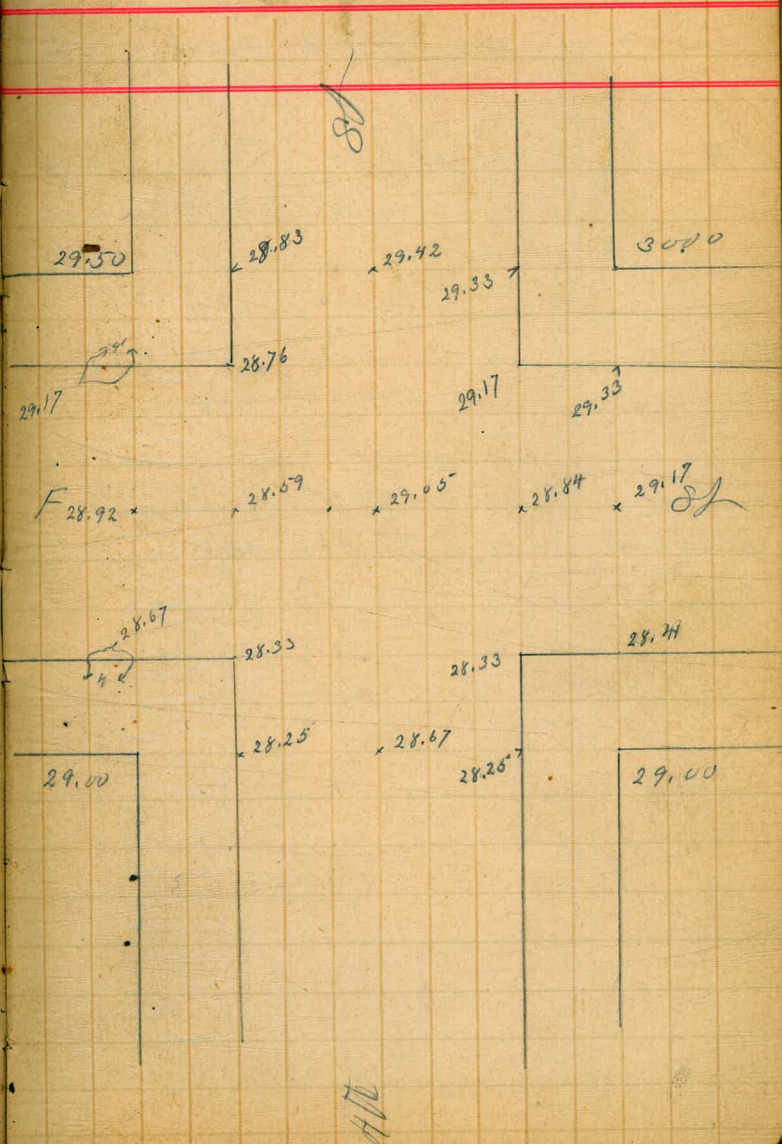 St
29.50
28.83
29.42
29.33
30.00
28.76
29.17
29.17
29.33
F
28.92
28.59
29.05
28.84
29.17
St
28.67
4
28.33
28.33
28.25
28.67
28.25
29.00
29.00